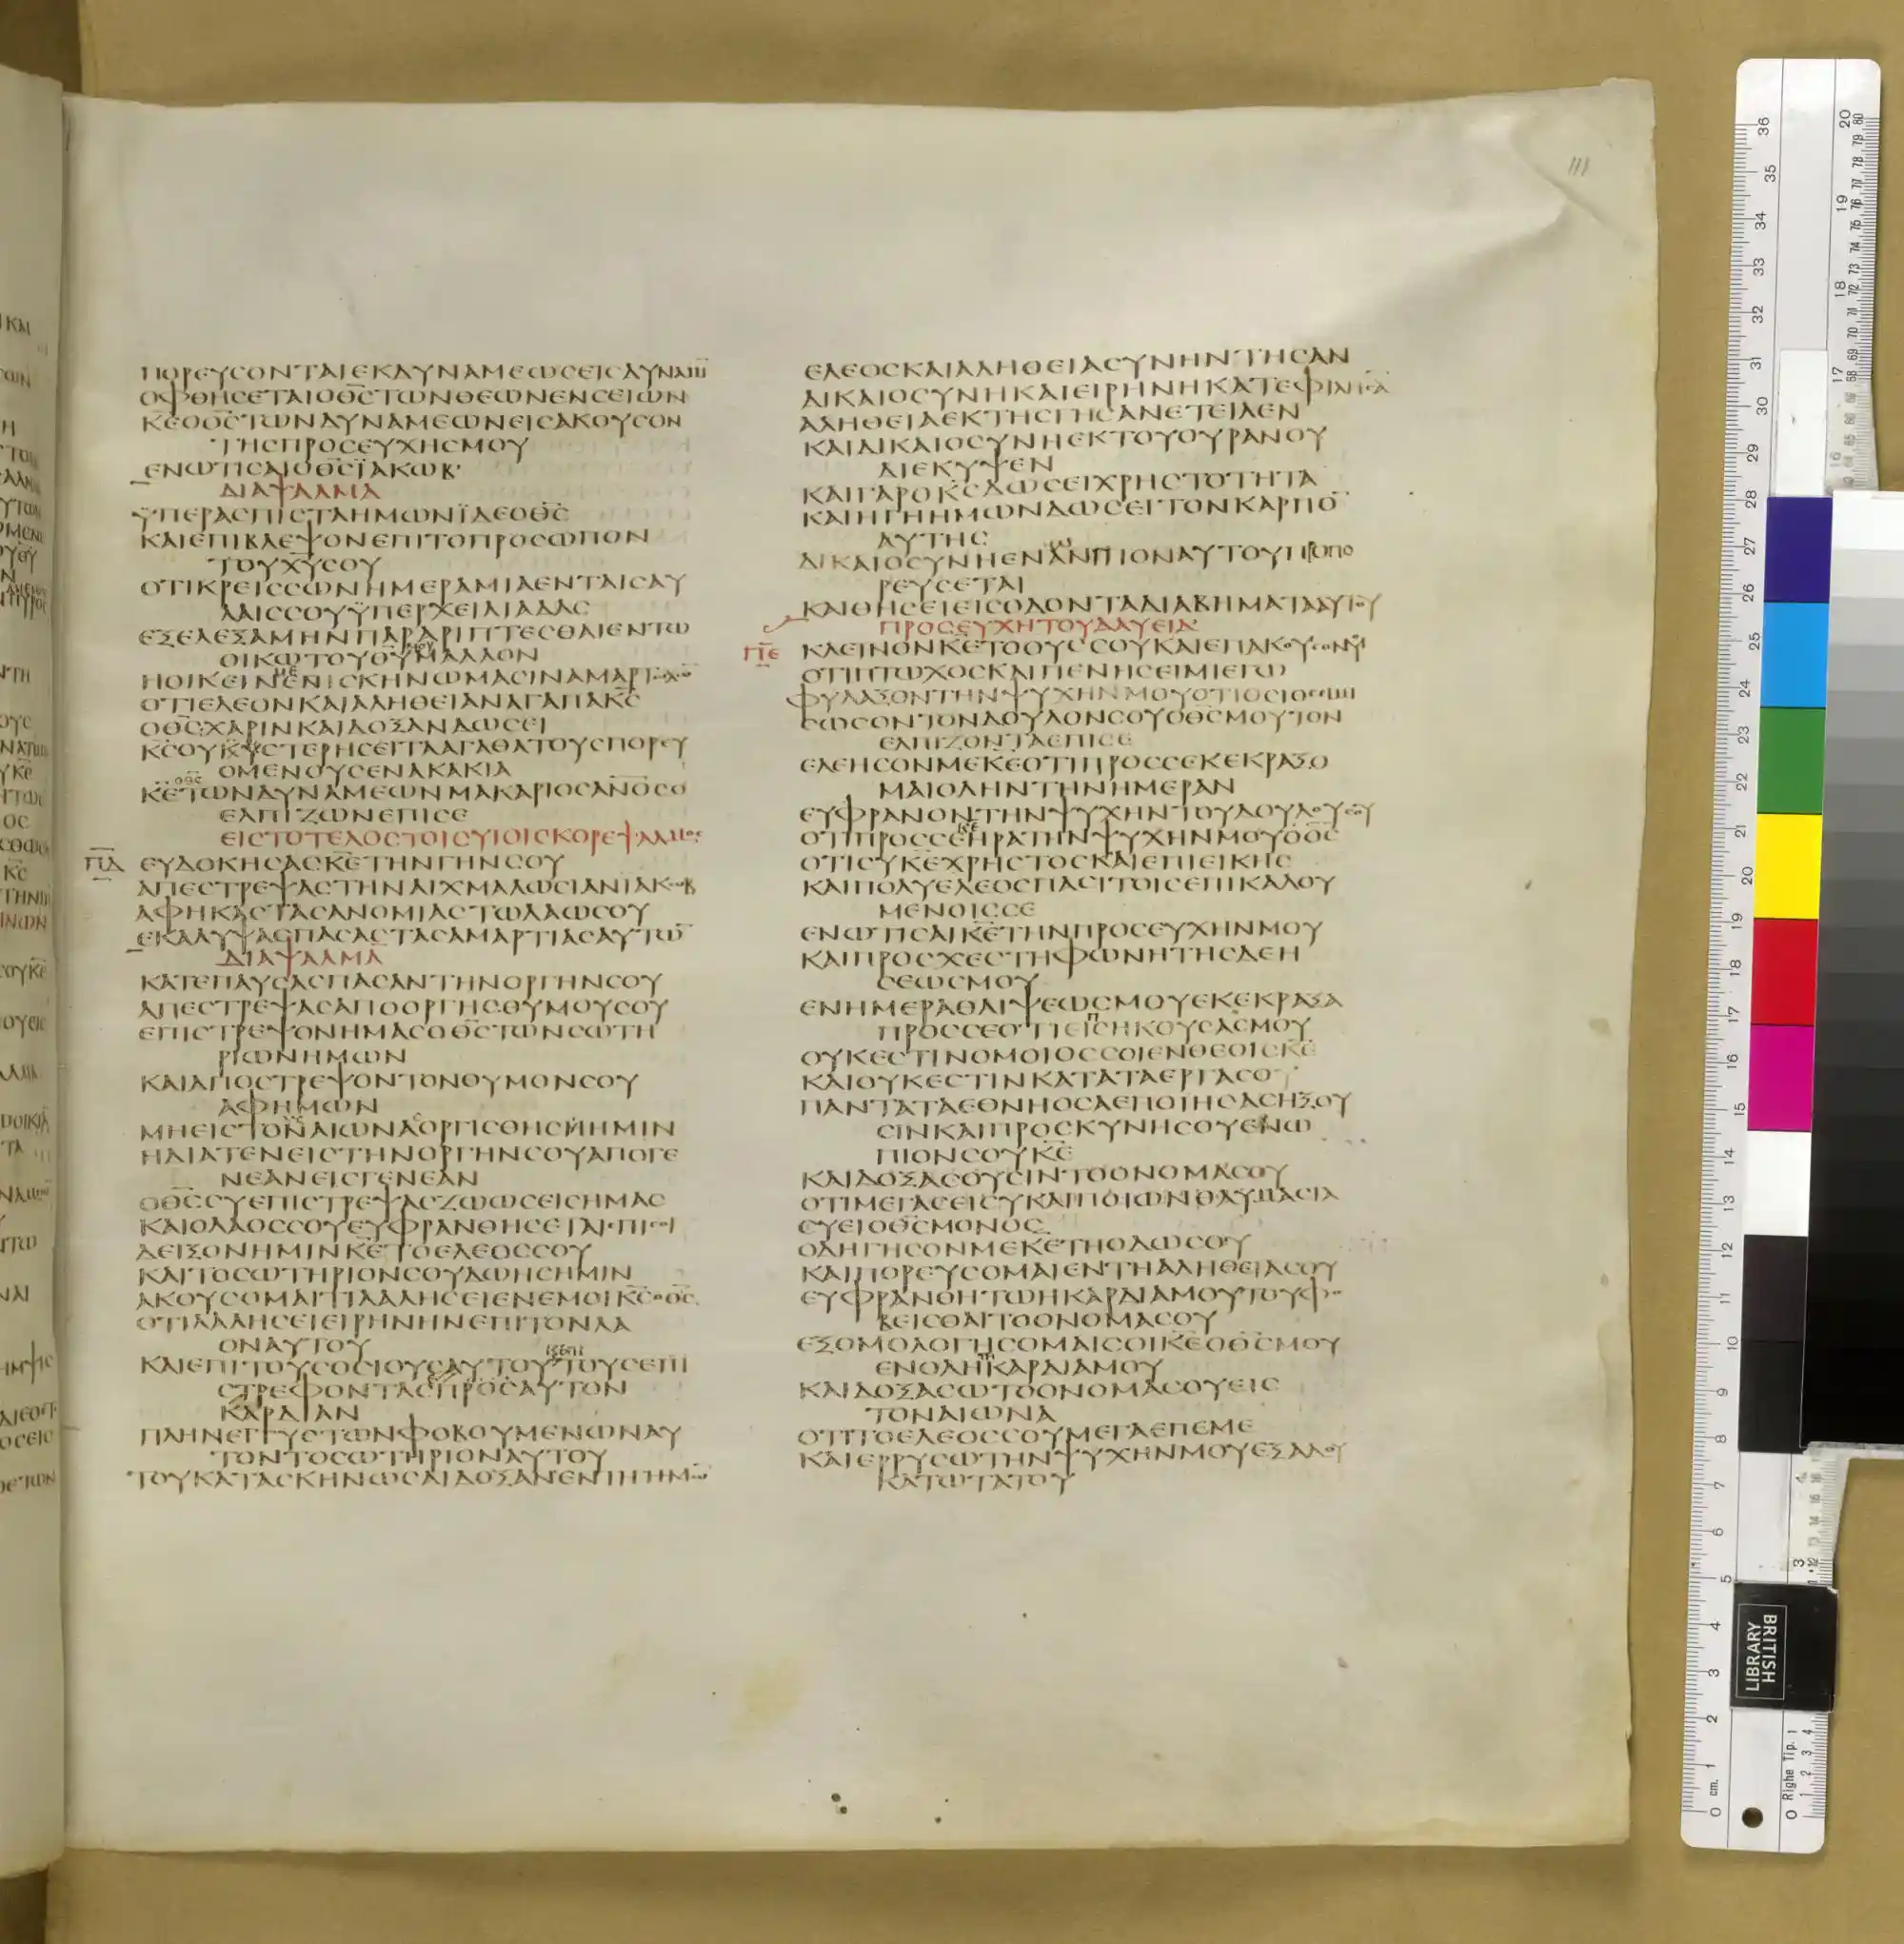 ΠΟΡΕΥΣΟΝΤΑΙΕΚΔΥΝΑΜΕΩΣΕΙΣΔΥΝΑΜΙ̅
ΟΦΘΗΣΕΤΑΙΟΘ̅Σ̅ΤΩΝΘΕΩΝΕΝΣΕΙΩΝ
Κ̅Ε̅ΟΘ̅Σ̅ΤΩΝΔΥΝΑΜΕΩΝΕΙΣΑΚΟΥΣΟΝ
ΤΗΣΠΡΟΣΕΥΧΗΣΜΟΥ
ΕΝΩΤΙΣΑΙΟΘ̅Σ̅ΪΑΚΩΒ·
ΔΙΑΨΑΛΜΑ
ΫΠΕΡΑΣΠΙΣΤΑΗΜΩΝΪΔΕΟΘ̅Σ̅
ΚΑΙΕΠΙΒΛΕΨΟΝΕΠΙΤΟΠΡΟΣΩΠΟΝ
ΤΟΥΧ̅Υ̅ΣΟΥ
ΟΤΙΚΡΕΙΣΣΩΝΗΜΕΡΑΜΙΑΕΝΤΑΙΣΑΥ
ΛΑΙΣΣΟΥΫΠΕΡΧΕΙΛΙΑΔΑΣ
ΕΞΕΛΕΞΑΜΗΝΠΑΡΑΡΙΠΤΕΣΘΑΙΕΝΤΩ
ΟΙΚΩΤΟΥΘ̅Υ̅ΜΑΛΛΟΝ
ΗΟΙΚΕΙΝΕΝΙΣΚΗΝΩΜΑΣΙΝΑΜΑΡΤΩΛΩ̅
ΟΤΙΕΛΕΟΝΚΑΙΑΛΗΘΕΙΑΝΑΓΑΠΑΚ̅Σ̅
ΟΘ̅Σ̅ΧΑΡΙΝΚΑΙΔΟΞΑΝΔΩΣΕΙ
Κ̅Σ̅ΟΥΚΫΣΤΕΡΗΣΕΙΤΑΑΓΑΘΑΤΟΥΣΠΟΡΕΥ
ΟΜΕΝΟΥΣΕΝΑΚΑΚΙΑ
Κ̅Ε̅ΤΩΝΔΥΝΑΜΕΩΝΜΑΚΑΡΙΟΣΑΝ̅Ο̅Σ̅Ο
ΕΛΠΙΖΩΝΕΠΙΣΕ
ΕΙΣΤΟΤΕΛΟΣΤΟΙΣΥΙΟΙΣΚΟΡΕΨΑΛΜΟΣ
Π̅Δ̅ ΕΥΔΟΚΗΣΑΣΚ̅Ε̅ΤΗΝΓΗΝΣΟΥ
ΑΠΕΣΤΡΕΨΑΣΤΗΝΑΙΧΜΑΛΩΣΙΑΝΪΑΚΩΒ
ΑΦΗΚΑΣΤΑΣΑΝΟΜΙΑΣΤΩΛΑΩΣΟΥ
ΕΚΑΛΥΨΑΣΠΑΣΑΣΤΑΣΑΜΑΡΤΙΑΣΑΥΤΩ̅
ΔΙΑΨΑΛΜΑ
ΚΑΤΕΠΑΥΣΑΣΠΑΣΑΝΤΗΝΟΡΓΗΝΣΟΥ
ΑΠΕΣΤΡΕΨΑΣΑΠΟΟΡΓΗΣΘΥΜΟΥΣΟΥ
ΕΠΙΣΤΡΕΨΟΝΗΜΑΣΟΘ̅Σ̅ΤΩΝΣΩΤΗ
ΡΙΩΝΗΜΩΝ
ΚΑΙΑΠΟΣΤΡΕΨΟΝΤΟΝΘΥΜΟΝΣΟΥ
ΑΦΗΜΩΝ
ΜΗΕΙΣΤΟΝΑΙΩΝΑΟΡΓΙΣΘΗΣΗΗΜΙΝ
ΗΔΙΑΤΕΝΕΙΣΤΗΝΟΡΓΗΝΣΟΥΑΠΟΓΕ
ΝΕΑΝΕΙΣΓΕΝΕΑΝ
ΟΘ̅Σ̅ΣΥΕΠΙΣΤΡΕΨΑΣΖΩΩΣΕΙΣΗΜΑΣ
ΚΑΙΟΛΑΟΣΣΟΥΕΥΦΡΑΝΘΗΣΕΤΑΙΕΠΙΣΟΙ
ΔΕΙΞΟΝΗΜΙΝΚ̅Ε̅ΤΟΕΛΕΟΣΣΟΥ
ΚΑΙΤΟΣΩΤΗΡΙΟΝΣΟΥΔΩΗΣΗΜΙΝ
ΑΚΟΥΣΟΜΑΙΤΙΛΑΛΗΣΕΙΕΝΕΜΟΙΚ̅Σ̅ΟΘ̅Σ̅
ΟΤΙΛΑΛΗΣΕΙΕΙΡΗΝΗΝΕΠΙΤΟΝΛΑ
ΟΝΑΥΤΟΥ
ΚΑΙΕΠΙΤΟΥΣΟΣΙΟΥΣΑΥΤΟΥΤΟΥΣΕΠΙ
ΣΤΡΕΦΟΝΤΑΣΠΡΟΣΑΥΤΟΝ
ΚΑΡΔΙΑΝ
ΠΛΗΝΕΓΓΥΣΤΩΝΦΟΒΟΥΜΕΝΩΝΑΥ
ΤΟΝΤΟΣΩΤΗΡΙΟΝΑΥΤΟΥ
ΤΟΥΚΑΤΑΣΚΗΝΩΣΑΙΔΟΞΑΝΕΝΤΗΓΗΗΜΩ̅
ΕΛΕΟΣΚΑΙΑΛΗΘΕΙΑΣΥΝΗΝΤΗΣΑΝ
ΔΙΚΑΙΟΣΥΝΗΚΑΙΕΙΡΗΝΗΚΑΤΕΦΙΛΗΣΑ
ΑΛΗΘΕΙΑΕΚΤΗΣΓΗΣΑΝΕΤΕΙΛΕΝ
ΚΑΙΔΙΚΑΙΟΣΥΝΗΕΚΤΟΥΟΥΡΑΝΟΥ
ΔΙΕΚΥΨΕΝ
ΚΑΙΓΑΡΟΚ̅Σ̅ΔΩΣΕΙΧΡΗΣΤΟΤΗΤΑ
ΚΑΙΗΓΗΗΜΩΝΔΩΣΕΙΤΟΝΚΑΡΠΟ̅
ΑΥΤΗΣ
ΔΙΚΑΙΟΣΥΝΗΕΝΑΝΠΙΟΝΑΥΤΟΥΠΡΟΠΟ
ΡΕΥΣΕΤΑΙ
ΚΑΙΘΗΣΕΙΕΙΣΟΔΟΝΤΑΔΙΑΒΗΜΑΤΑΑΥΤΟΥ
ΠΡΟΣΕΥΧΗΤΟΥΔΑΥΕΙΔ
Π̅Ε̅ ΚΛΕΙΝΟΝΚ̅Ε̅ΤΟΟΥΣΣΟΥΚΑΙΕΠΑΚΟΥΣΟΝΜΟΥ
ΟΤΙΠΤΩΧΟΣΚΑΙΠΕΝΗΣΕΙΜΙΕΓΩ
ΦΥΛΑΞΟΝΤΗΝΨΥΧΗΝΜΟΥΟΤΙΟΣΙΟΣΕΙΜΙ
ΣΩΣΟΝΤΟΝΔΟΥΛΟΝΣΟΥΟΘ̅Σ̅ΜΟΥΤΟΝ
ΕΛΠΙΖΟΝΤΑΕΠΙΣΕ
ΕΛΕΗΣΟΝΜΕΚ̅Ε̅ΟΤΙΠΡΟΣΣΕΚΕΚΡΑΞΟ
ΜΑΙΟΛΗΝΤΗΝΗΜΕΡΑΝ
ΕΥΦΡΑΝΟΝΤΗΝΨΥΧΗΝΤΟΥΔΟΥΛΟΥΣΟΥ
ΟΤΙΠΡΟΣΣΕΗΡΑΤΗΝΨΥΧΗΝΜΟΥΟΘ̅Σ̅
ΟΤΙΣΥΚ̅Ε̅ΧΡΗΣΤΟΣΚΑΙΕΠΙΕΙΚΗΣ
ΚΑΙΠΟΛΥΕΛΕΟΣΠΑΣΙΤΟΙΣΕΠΙΚΑΛΟΥ
ΜΕΝΟΙΣΣΕ
ΕΝΩΤΙΣΑΙΚ̅Ε̅ΤΗΝΠΡΟΣΕΥΧΗΝΜΟΥ
ΚΑΙΠΡΟΣΧΕΣΤΗΦΩΝΗΤΗΣΔΕΗ
ΣΕΩΣΜΟΥ
ΕΝΗΜΕΡΑΘΛΙΨΕΩΣΜΟΥΕΚΕΚΡΑΞΑ
ΠΡΟΣΣΕΟΤΙΕΙΣΗΚΟΥΣΑΣΜΟΥ
ΟΥΚΕΣΤΙΝΟΜΟΙΟΣΣΟΙΕΝΘΕΟΙΣΚ̅Ε̅
ΚΑΙΟΥΚΕΣΤΙΝΚΑΤΑΤΑΕΡΓΑΣΟΥ
ΠΑΝΤΑΤΑΕΘΝΗΟΣΑΕΠΟΙΗΣΑΣΗΞΟΥ
ΣΙΝΚΑΙΠΡΟΣΚΥΝΗΣΟΥΕΝΩ
ΠΙΟΝΣΟΥΚ̅Ε̅
ΚΑΙΔΟΞΑΣΟΥΣΙΝΤΟΟΝΟΜΑΣΟΥ
ΟΤΙΜΕΓΑΣΕΙΣΥΚΑΙΠΟΙΩΝΘΑΥΜΑΣΙΑ
ΣΥΕΙΟΘ̅Σ̅ΜΟΝΟΣ
ΟΔΗΓΗΣΟΝΜΕΚ̅Ε̅ΤΗΟΔΩΣΟΥ
ΚΑΙΠΟΡΕΥΣΟΜΑΙΕΝΤΗΑΛΗΘΕΙΑΣΟΥ
ΕΥΦΡΑΝΘΗΤΩΗΚΑΡΔΙΑΜΟΥΤΟΥΦΟ
ΒΕΙΣΘΑΙΤΟΟΝΟΜΑΣΟΥ
ΕΞΟΜΟΛΟΓΗΣΟΜΑΙΣΟΙΚ̅Ε̅ΟΘ̅Σ̅ΜΟΥ
ΕΝΟΛΗΚΑΡΔΙΑΜΟΥ
ΚΑΙΔΟΞΑΣΩΤΟΟΝΟΜΑΣΟΥΕΙΣ
ΤΟΝΑΙΩΝΑ
ΟΤΙΤΟΕΛΕΟΣΣΟΥΜΕΓΑΕΠΕΜΕ
ΚΑΙΕΡΡΥΣΩΤΗΝΨΥΧΗΝΜΟΥΕΞΑΔΟΥ
ΚΑΤΩΤΑΤΟΥ
BRITISH
LIBRARY